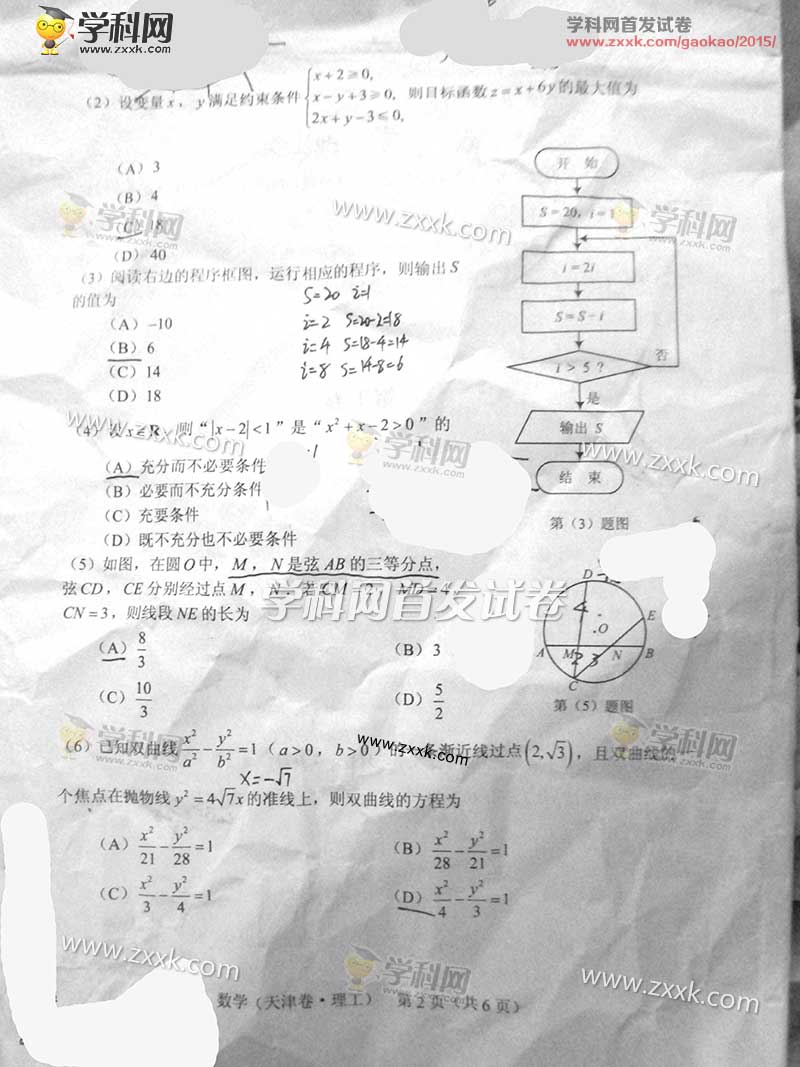 学科网
www.zxxk.com
学科网首发试卷
www.zxxk.com/gaokao/2015/
(2) 设变量 x，y 满足约束条件 { x+2≥0, x-y+3≥0, 2x+y-3≤0, 则目标函数 z=x+6y 的最大值为
(A) 3
(B) 4
(C) 18
(D) 40
(3) 阅读右边的程序框图，运行相应的程序，则输出 S
的值为
S=20 i=1
(A) -10
i=2 S=20-2=18
(B) 6
i=4 S=18-4=14
(C) 14
i=8 S=14-8=6
(D) 18
开 始
S=20，i=1
i=2i
S=S-i
i>5？
否
是
输出 S
结 束
第（3）题图
(4) 设 x∈R，则“|x-2|<1”是“x²+x-2>0”的
(A) 充分而不必要条件
(B) 必要而不充分条件
(C) 充要条件
(D) 既不充分也不必要条件
(5) 如图，在圆 O 中，M，N 是弦 AB 的三等分点，
弦 CD，CE 分别经过点 M，N．若 CM=2，MD=4，
CN=3，则线段 NE 的长为
(A) 8/3
(B) 3
(C) 10/3
(D) 5/2
D
E
4
O
A
M
2
3
N
B
C
第（5）题图
(6) 已知双曲线 x²/a² - y²/b² =1（a>0，b>0）的一条渐近线过点(2,√3)，且双曲线的一
x=-√7
个焦点在抛物线 y²=4√7x 的准线上，则双曲线的方程为
(A) x²/21 - y²/28 =1
(B) x²/28 - y²/21 =1
(C) x²/3 - y²/4 =1
(D) x²/4 - y²/3 =1
数学（天津卷·理工） 第 2 页（共 6 页）
学科网
www.zxxk.com
学科网首发试卷